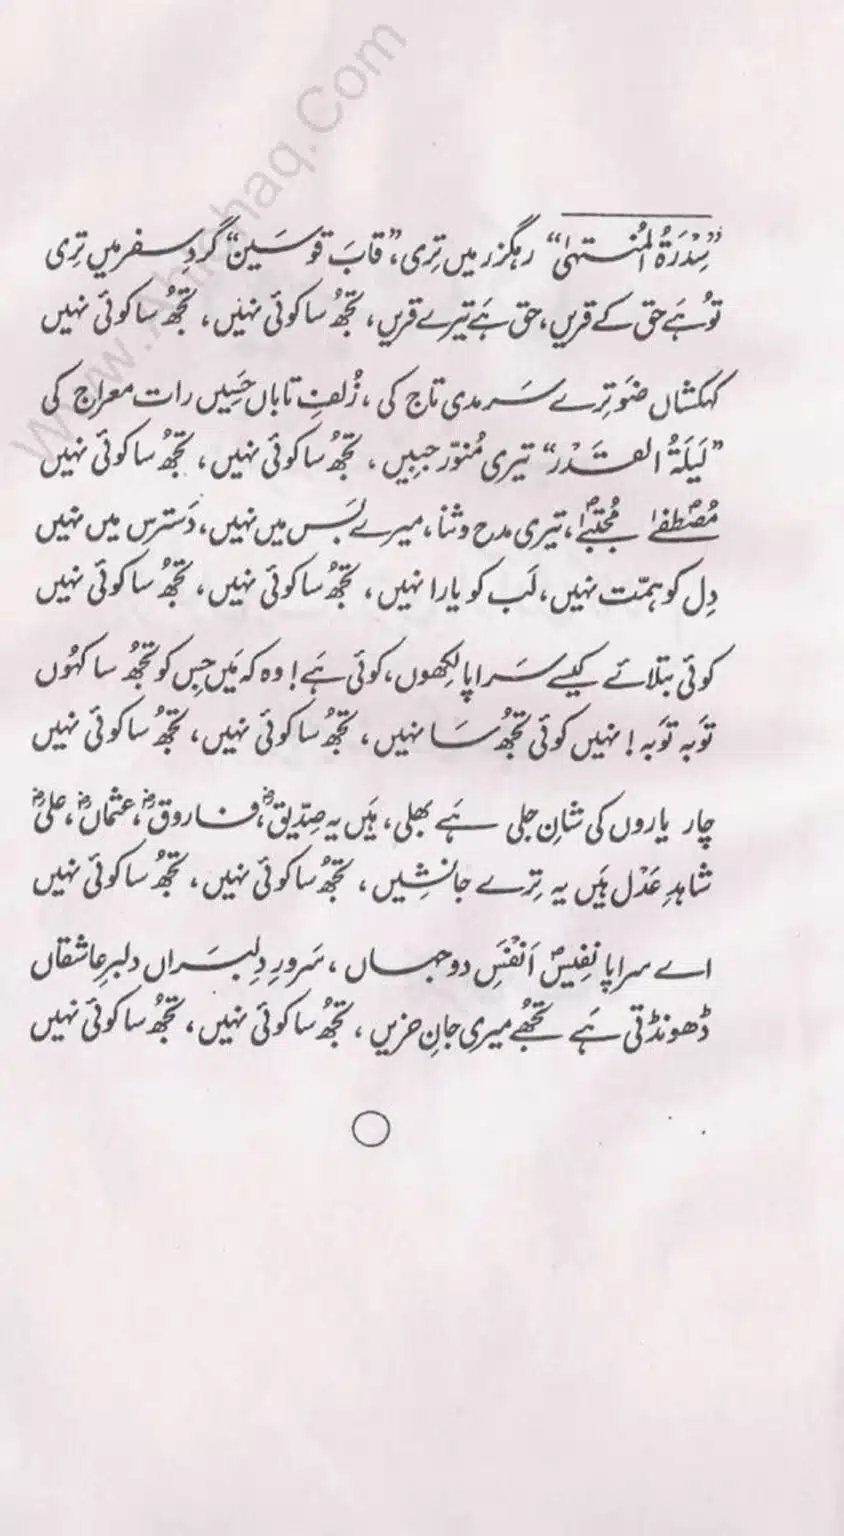 www.Ahlehaq.Com
”سِدْرَۃُ الْمُنتہیٰ“ رہگزر میں تِری، ”قابَ قوسَین“ گردِ سفر میں تِری
تُو ہَے حق کے قریں، حق ہَے تیرے قریں، تجھ سا کوئی نہیں، تجھ سا کوئی نہیں
کہکشاں ضَو تِرے سَرمدی تاج کی، زُلفِ تاباں حَسِیں رات معراج کی
”لَیلَۃُ القَدْر“ تیری مُنوّر جبِیں، تجھ سا کوئی نہیں، تجھ سا کوئی نہیں
مُصْطفےٰؐ مجتبےٰؐ، تیری مدح و ثنا، میرے بَس میں نہیں، دَسترس میں نہیں
دِل کو ہمّت نہیں، لَب کو یارا نہیں، تجھ سا کوئی نہیں، تجھ سا کوئی نہیں
کوئی بتلائے کَیسے سَراپا لِکھوں، کوئی ہَے! وہ کہ مَیں جِس کو تجھُ سا کہُوں
توَبہ توَبہ! نہیں کوئی تجھُ سَا نہیں، تجھُ سا کوئی نہیں، تجھُ سا کوئی نہیں
چار یاروں کی شانِ جلی ہَے بھلی، ہَیں یہ صِدّیقؓ، فاروقؓ، عثماںؓ، علیؓ
شاہدِ عَدْل ہَیں یہ تِرے جانشِیں، تجھُ سا کوئی نہیں، تجھُ سا کوئی نہیں
اے سراپا نفِیسؐ اَنفَسِ دوجہاں، سَرورِ دِلبَراں دلبرِ عاشقاں
ڈھونڈتی ہَے تجھُے میری جانِ حزیں، تجھُ سا کوئی نہیں، تجھُ سا کوئی نہیں